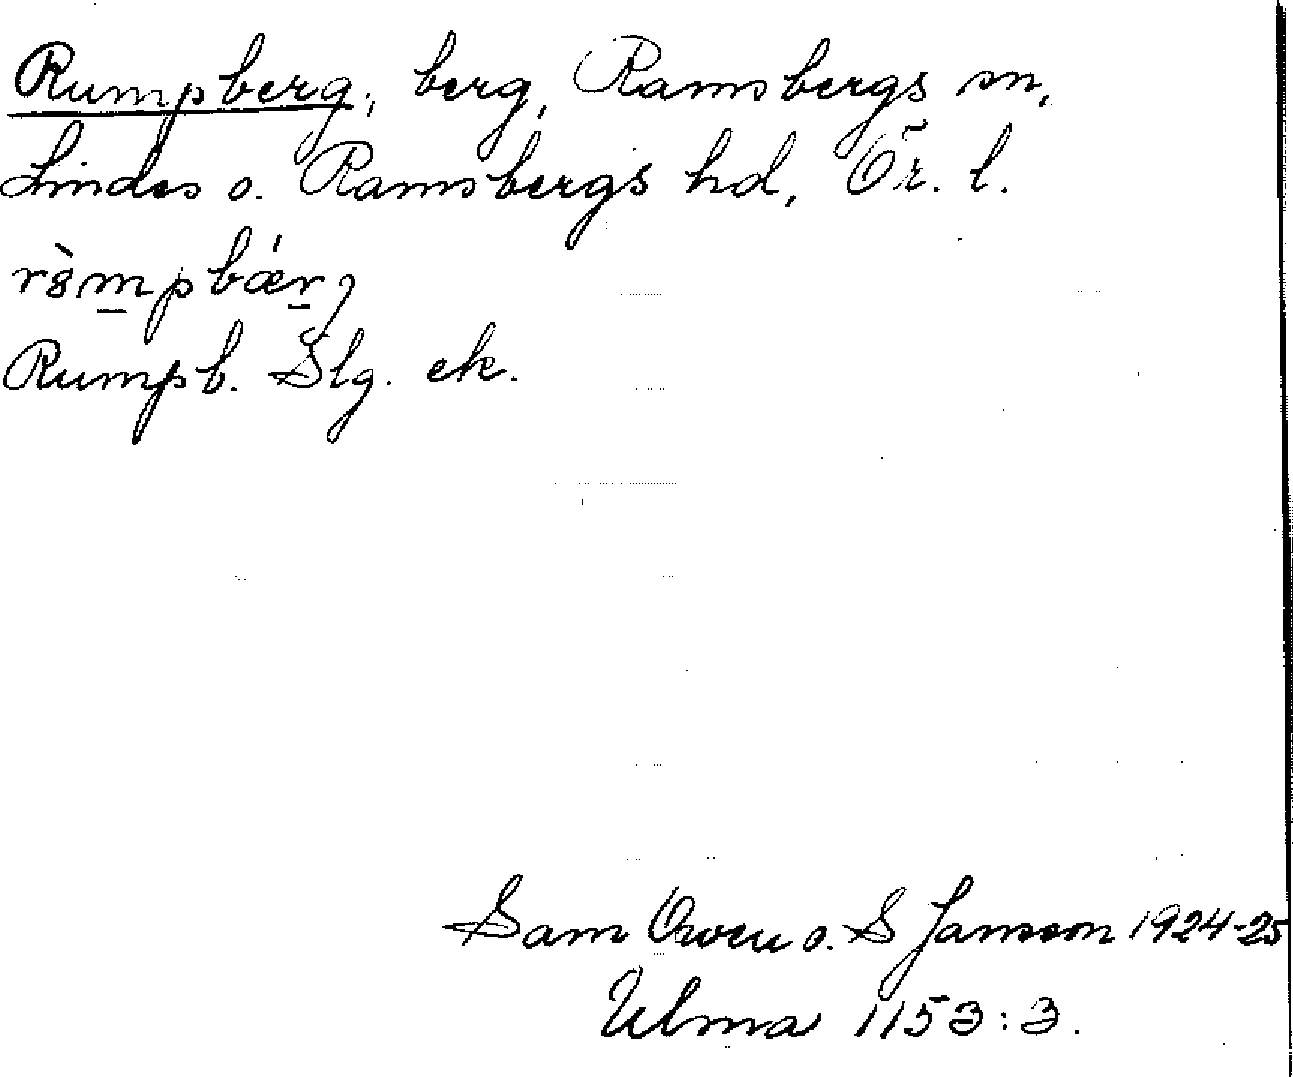 Rumpberg, berg, Ramsbergs sn,
Lindes o. Ramsbergs hd, Ör. l.
Rumpb. Slg. ek.
Sam Owen o. S Janson 1924-25
Ulma 1153:3.